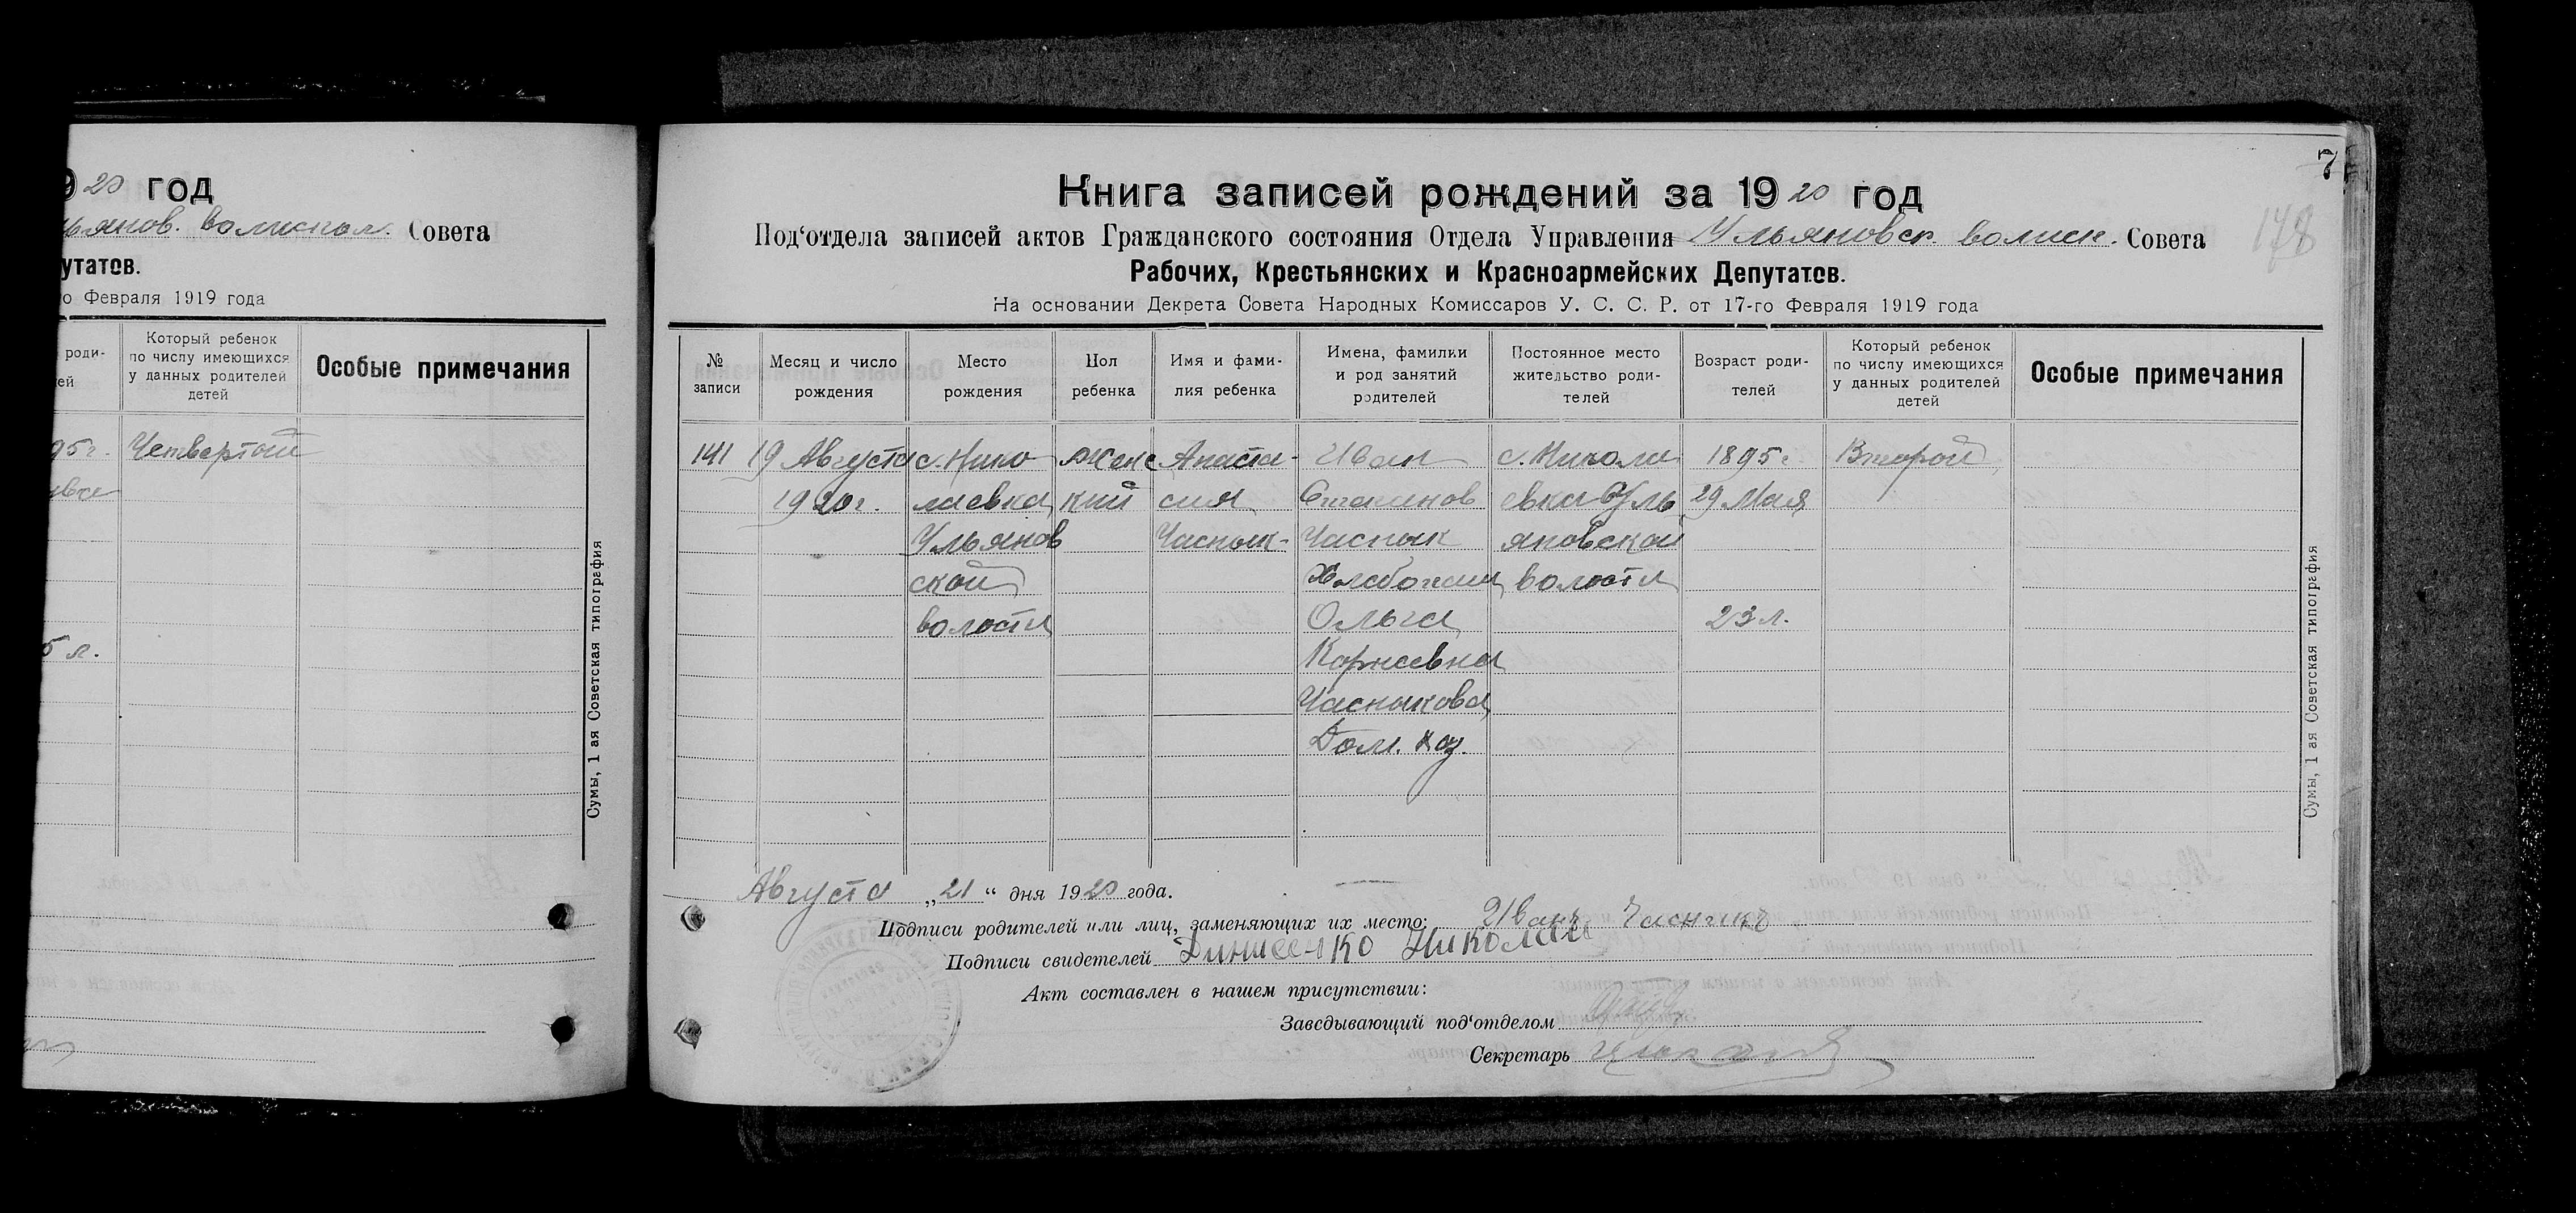 20 год
ьянов. волиспол. Совета
утатов.
го Февраля 1919 года
роди-
тей
Который ребенок
по числу имеющихся
у данных родителей
детей
Особые примечания
95г. Четвертый
5 л.
Сумы, 1 ая Советская типография
7
178
Книга записей рождений за 1920 год
Под‘отдела записей актов Гражданского состояния Отдела Управления Ульяновск. волисп. Совета
Рабочих, Крестьянских и Красноармейских Депутатов.
На основании Декрета Совета Народных Комиссаров У. С. С. Р. от 17-го Февраля 1919 года
№
записи
Месяц и число
рождения
Место
рождения
Пол
ребенка
Имя и фами-
лия ребенка
Имена, фамилии
и род занятий
родителей
Постоянное место
жительство роди-
телей
Возраст роди-
телей
Который ребенок
по числу имеющихся
у данных родителей
детей
Особые примечания
141
19 Августа
1920г.
с. Нико
лаевка
Ульянов
ской
волости
Женс
кий
Анаста-
сия
Часнык-
Иван
Часнык
Хлебопаш
Ольга
Корнеевна
Часныкова
Дом. хоз.
с. Никола
евка Уль
яновской
волости
1895г
29 Мая
23 л.
Второй
Сумы, 1 ая Советская типография
Августа „21“ дня 1920 года.
Подписи родителей или лиц, заменяющих их место: Иванъ Часныкъ
Подписи свидетелей Николай
Акт составлен в нашем присутствии:
Заведывающий под‘отделом
Секретарь